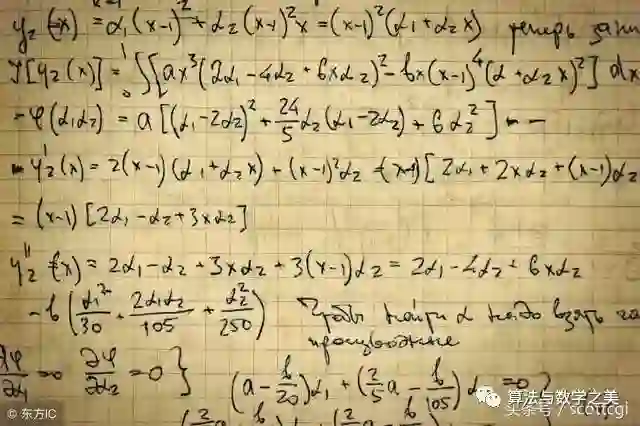 y₂(x) = α₁(x-1)² + α₂(x-1)²x = (x-1)²(α₁+α₂x) теперь запи
J[y₂(x)] = ∫₀¹ ∫[ax³(2α₁-4α₂+6xα₂)² - bx(x-1)⁴(α+α₂x)²] dx
- φ(α₁α₂) = a[(α₁-2α₂)² + 24/5 α₂(α₁-2α₂) + 6α₂²] - -
- y₂'(x) = 2(x-1)(α₁+α₂x) + (x-1)²α₂ = (x-1)[2α₁+2xα₂+(x-1)α₂
= (x-1)[2α₁-α₂+3xα₂]
y₂''(x) = 2α₁-α₂+3xα₂+3(x-1)α₂ = 2α₁-4α₂+6xα₂
- b(α₁²/30 + 2α₁α₂/105 + α₂²/250) Чтобы найти α надо взять
производные
∂φ/∂α₁ = 0 ∂φ/∂α₂ = 0 } (a - b/20)α₁ + (2/5 a - b/105)α₂ = 0 }
算法与数学之美
头条号 / scottcgi
© 东方IC